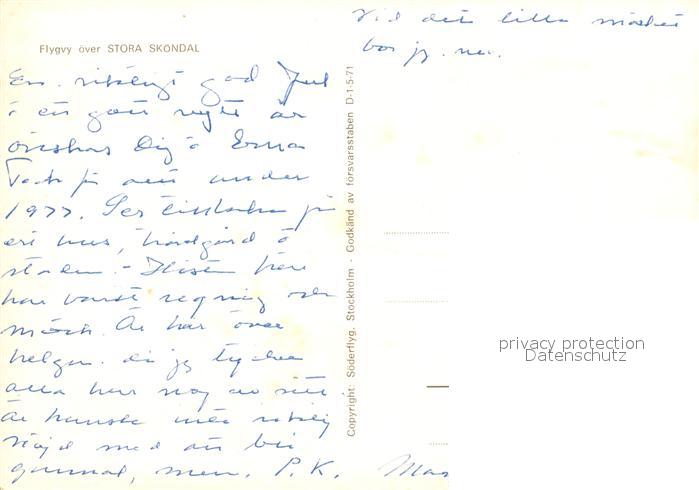 Flygvy över STORA SKÖNDAL
En riktigt god Jul
& ett gott nytt år
önskas Dig & Erna
Tack för allt under
1977. Ser tillbaka på
ert hus, trädgård &
staden. - Hösten här
har varit regnig och
mörk. Är här över
helgen, då jag tycker
alla har nog av sitt
Är kanske inte riktig
nöjd med att bli
gammal, men. P.K.
Vid det lilla märket
bor jag nu.
Copyright: Söderflyg. Stockholm - Godkänd av försvarsstaben D-1-5-71
privacy protection
Datenschutz